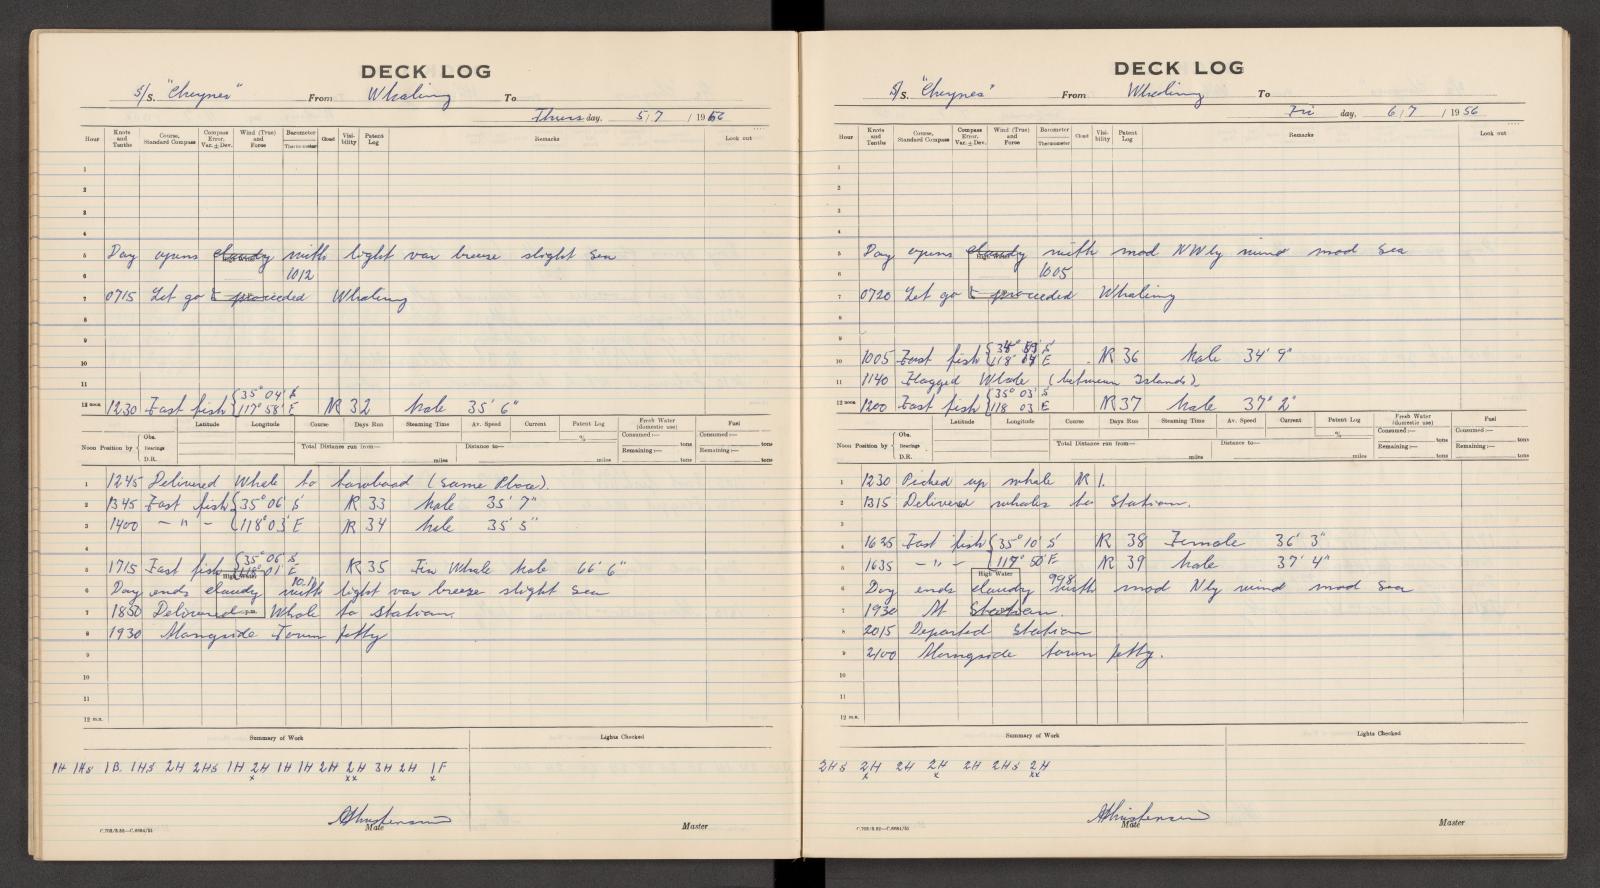 DECK LOG
S/S. "Cheynes" From Whaling To
Thurs day, 5/7 / 1956
Hour Knots and Tenths Course, Standard Compass Compass Error. Var. ± Dev. Wind (True) and Force Barometer Thermometer Cloud Visi- bility Patent Log Remarks Look out
1
2
3
4
5 Day opens cloudy with light var breeze slight sea
6 1012
7 0715 Let go & proceeded Whaling
8
9
10
11
12 noon 1230 Fast fish { 35° 04' S 117° 58' E NR 32 Male 35' 6"
Noon Position by { Obs. Bearings D.R. Latitude Longitude Course Days Run Steaming Time Av. Speed Current Patent Log % Fresh Water (domestic use) Fuel
Total Distance run from— miles Distance to— miles Consumed :— tons Remaining :— tons Consumed :— tons Remaining :— tons
1 1245 Delivered Whale to towboad (Same Place).
2 1345 Fast fish { 35° 06' S NR 33 Male 35' 7"
3 1400 — " — { 118° 03' E NR 34 Male 35' 5"
4
5 1715 Fast fish { 35° 06' S 118° 01' E NR 35 Fin Whale Male 66' 6"
High Water
6 Day ends cloudy with light var breeze slight sea
7 1850 Delivered Whale to Station.
8 1930 Alongside Town Jetty
9
10
11
12 m.n.
Summary of Work Lights Checked
1H 1Hs 1B. 1HS 2H 2HS 1H 2H 1H 1H 2H 2H 3H 2H 1F
x xx x
AChristensen
Mate Master
DECK LOG
S/S. "Cheynes" From Whaling To
Fri day, 6/7 / 1956
Hour Knots and Tenths Course, Standard Compass Compass Error. Var. ± Dev. Wind (True) and Force Barometer Thermometer Cloud Visi- bility Patent Log Remarks Look out
1
2
3
4
5 Day opens cloudy with mod NWly wind mod sea
6 1005
7 0720 Let go & proceeded Whaling
8
9
10 1005 Fast fish { S 118° E NR 36 Male 34' 9"
11 1140 Flagged Whale (between Islands)
12 noon 1200 Fast fish { 35° 03' S 118 03 E NR 37 Male 37' 2"
Noon Position by { Obs. Bearings D.R. Latitude Longitude Course Days Run Steaming Time Av. Speed Current Patent Log % Fresh Water (domestic use) Fuel
Total Distance run from— miles Distance to— miles Consumed :— tons Remaining :— tons Consumed :— tons Remaining :— tons
1 1230 Picked up whale NR 1.
2 1315 Delivered whales to Station.
3
4 1625 Fast fish { 35° 10' S NR 38 Female 36' 3"
5 1635 — " — { 117° 50' E NR 39 Male 37' 4"
High Water 998
6 Day ends cloudy with mod Nly wind mod sea
7 1930 At Station.
8 2015 Departed Station
9 2100 Alongside town jetty.
10
11
12 m.n.
Summary of Work Lights Checked
2HS 2H 2H 2H 2H 2HS 2H
x x xx
AChristensen
Mate Master